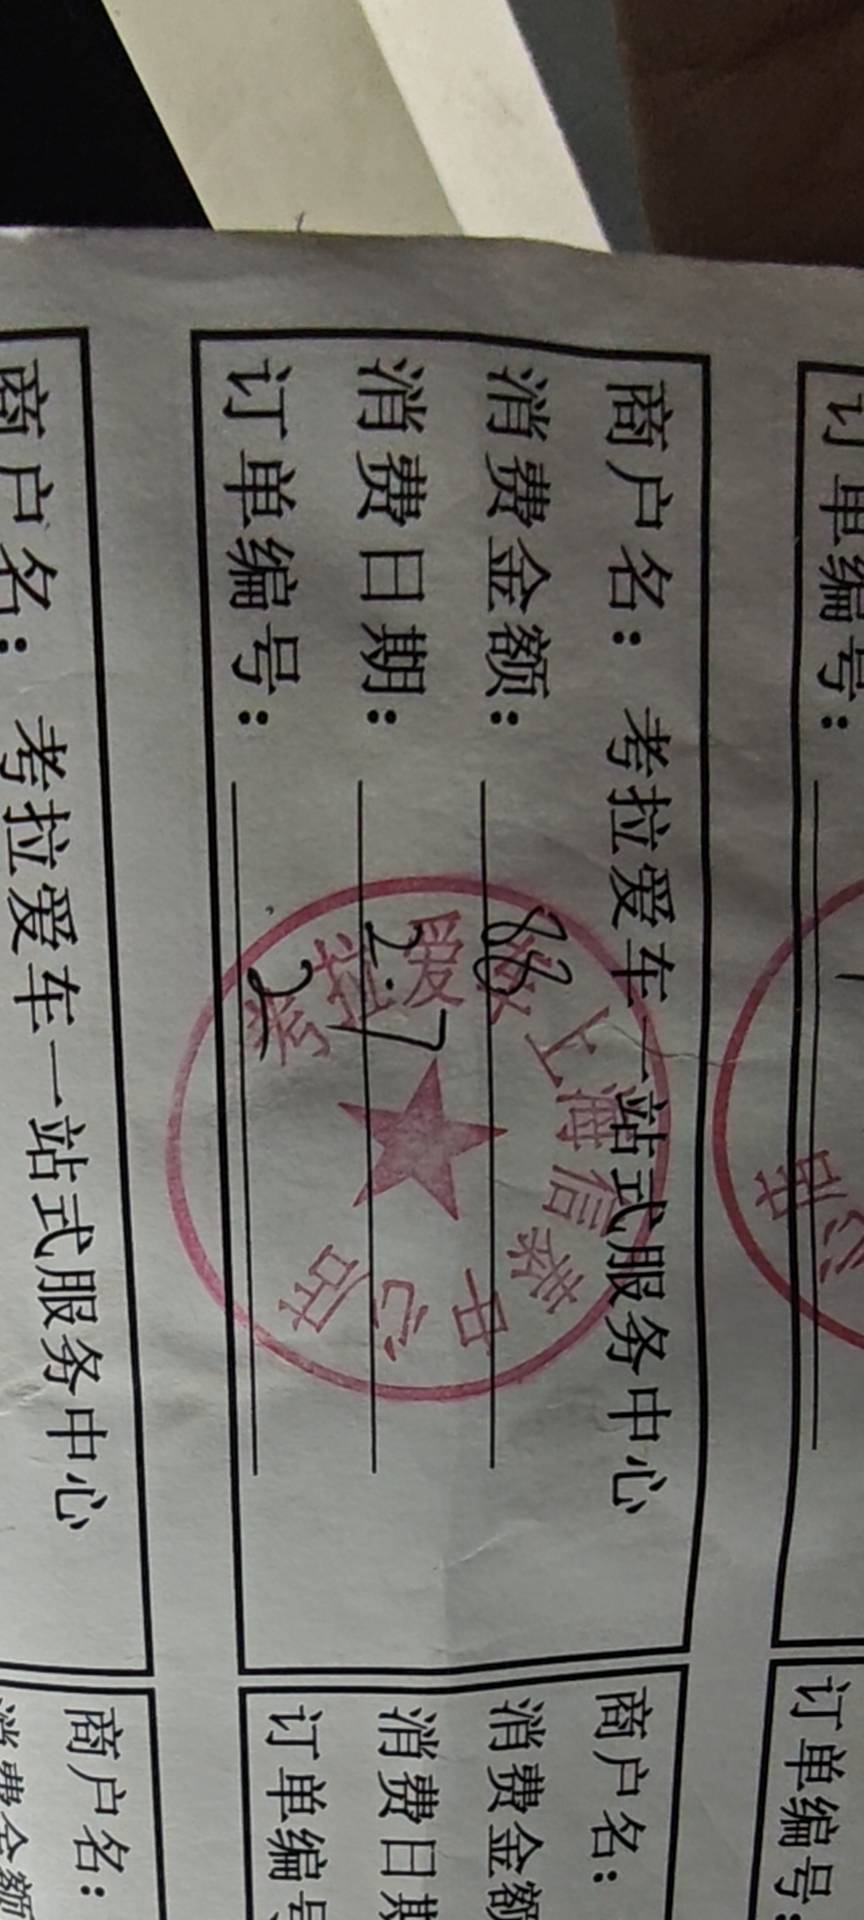 订单编号：
商户名：考拉爱车一站式服务中心
消费金额：88
消费日期：2.17
订单编号：2
考拉爱车上海信泰中心店
商户名：考拉爱车一站式服务中心
商户名：
消费金额
消费日期
订单编号
订单编号：
商户名：
消费金额